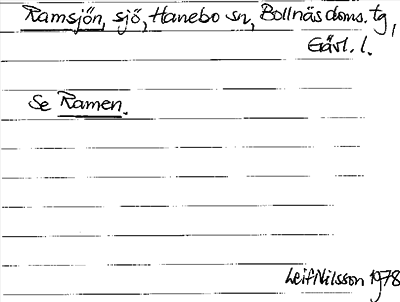 Ramsjön, sjö, Hanebo sn, Bollnäs doms. tg,
Gävl. l.
Se Ramen.
Leif Nilsson 1978